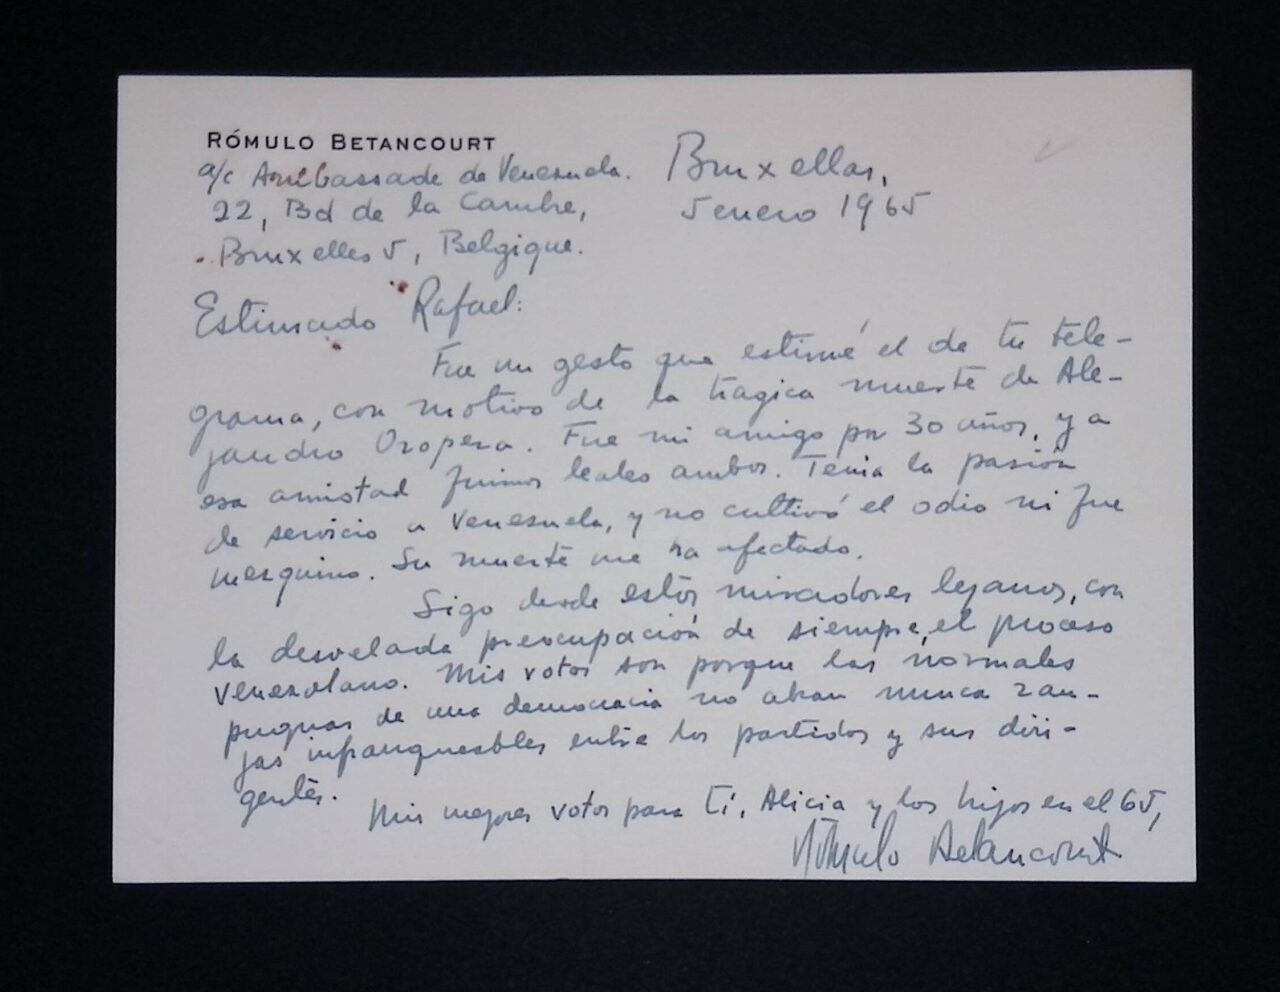 RÓMULO BETANCOURT
a/c Ambassade de Venezuela.
22, Bd de la Cambre,
Bruxelles 5, Belgique.
Bruxellas,
5 enero 1965
Estimado Rafael:
Fue un gesto que estimé el de tu tele-
grama, con motivo de la trágica muerte de Ale-
jandro Oropeza. Fue mi amigo por 30 años, y a
esa amistad fuimos leales ambos. Tenía la pasión
de servicio a Venezuela, y no cultivó el odio ni fue
mezquino. Su muerte me ha afectado.
Sigo desde estos miradores lejanos, con
la desvelada preocupación de siempre, el proceso
venezolano. Mis votos son porque las normales
pugnas de una democracia no abran nunca zan-
jas infranqueables entre los partidos y sus diri-
gentes.
Mis mejores votos para ti, Alicia y los hijos en el 65,
Rómulo Betancourt